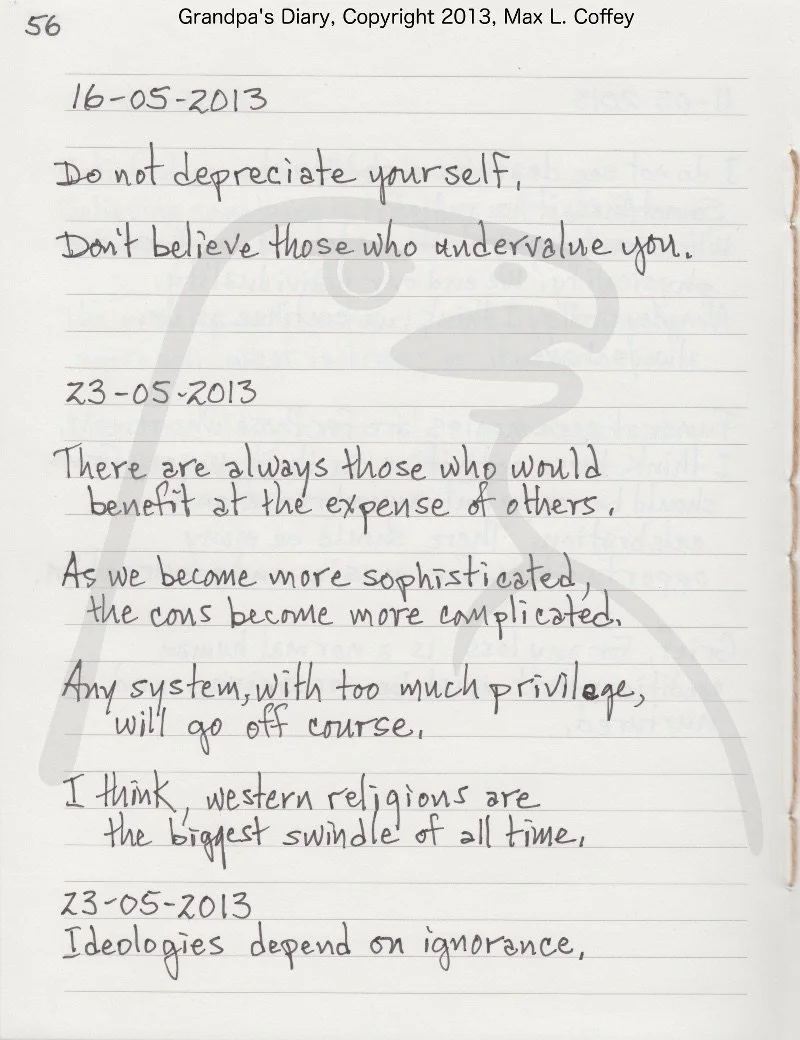 56
Grandpa's Diary, Copyright 2013, Max L. Coffey
16-05-2013
Do not depreciate yourself.
Don't believe those who undervalue you.
23-05-2013
There are always those who would
benefit at the expense of others.
As we become more sophisticated,
the cons become more complicated.
Any system, with too much privilege,
will go off course.
I think, western religions are
the biggest swindle of all time.
23-05-2013
Ideologies depend on ignorance.